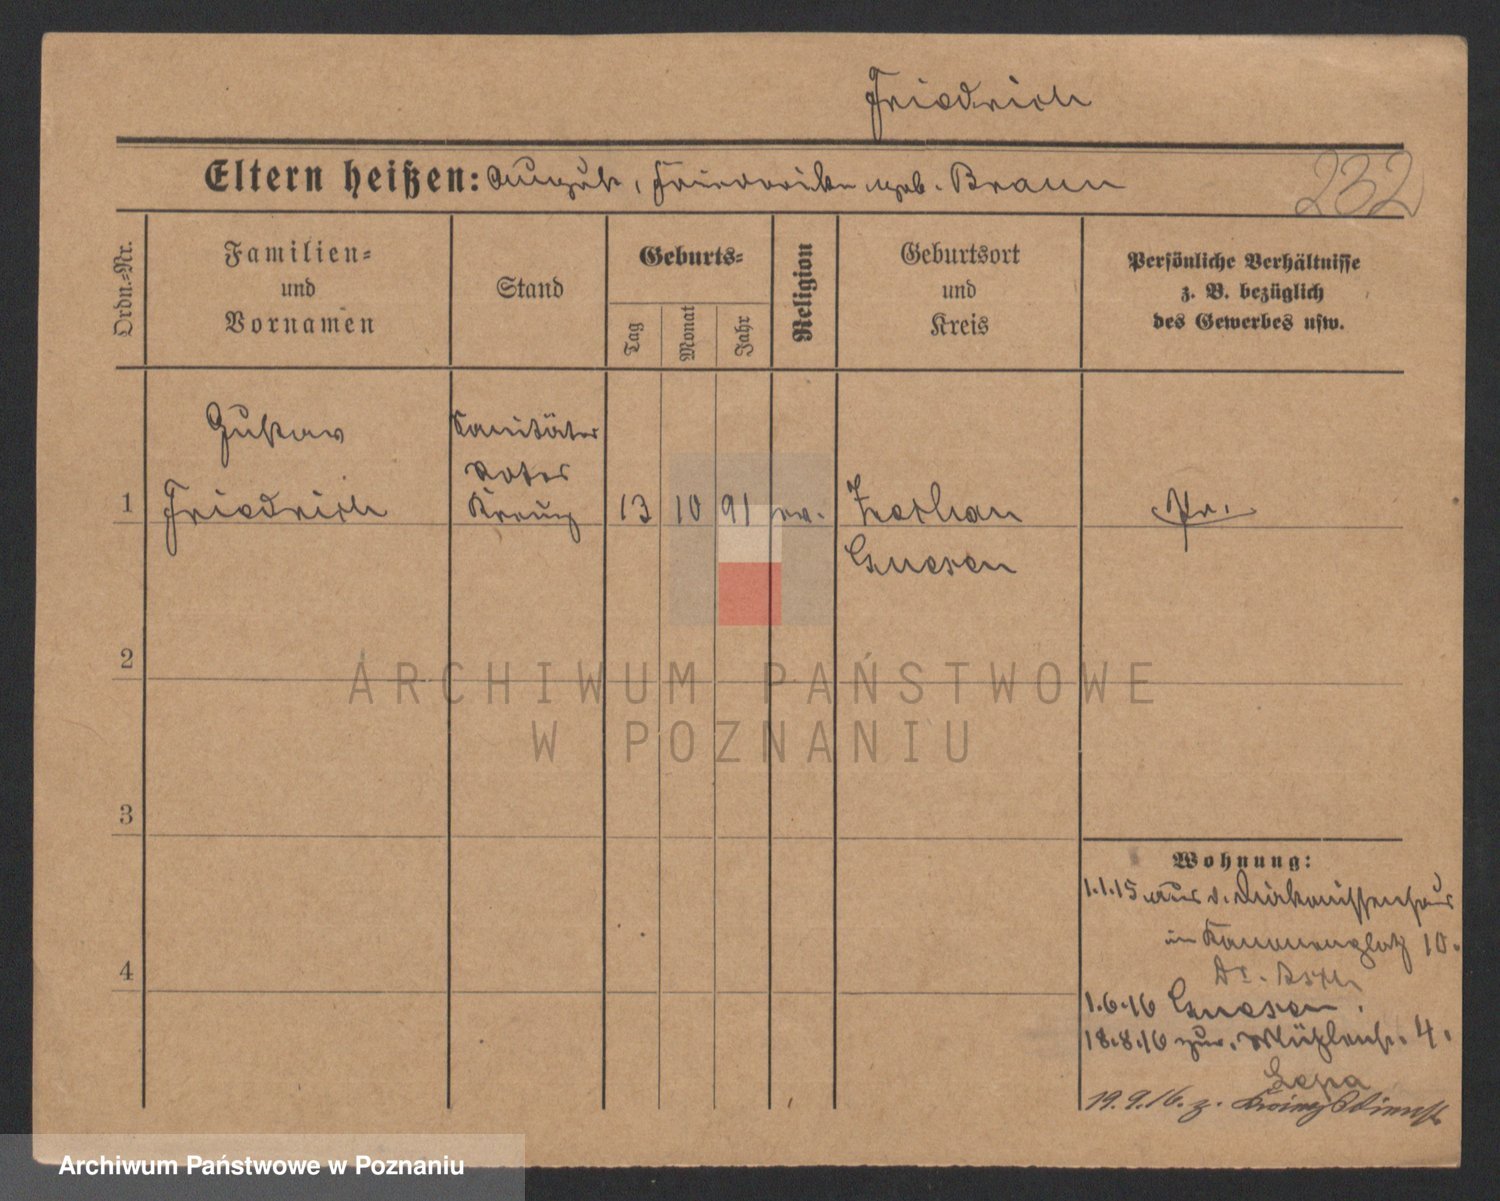 Friedrich
Eltern heißen: August, Friederike geb. Braun
232
Ordn.-Nr.
Familien-
und
Vornamen
Stand
Geburts-
Tag
Monat
Jahr
Religion
Geburtsort
und
Kreis
Persönliche Verhältnisse
z. B. bezüglich
des Gewerbes usw.
Gustav
Sanitäter
Rotes
1 Friedrich Kreuz 13 10 91 ev. Pr.
Gnesen
2
ARCHIWUM PAŃSTWOWE
W POZNANIU
3
Wohnung:
1.1.15 aus d. Diakonissenhaus
in Kanonenplatz 10.
1.6.16 Gnesen.
18.8.16 zur. Mühlenstr. 4.
4
19.9.16. z. Kriegsdienst
Archiwum Państwowe w Poznaniu